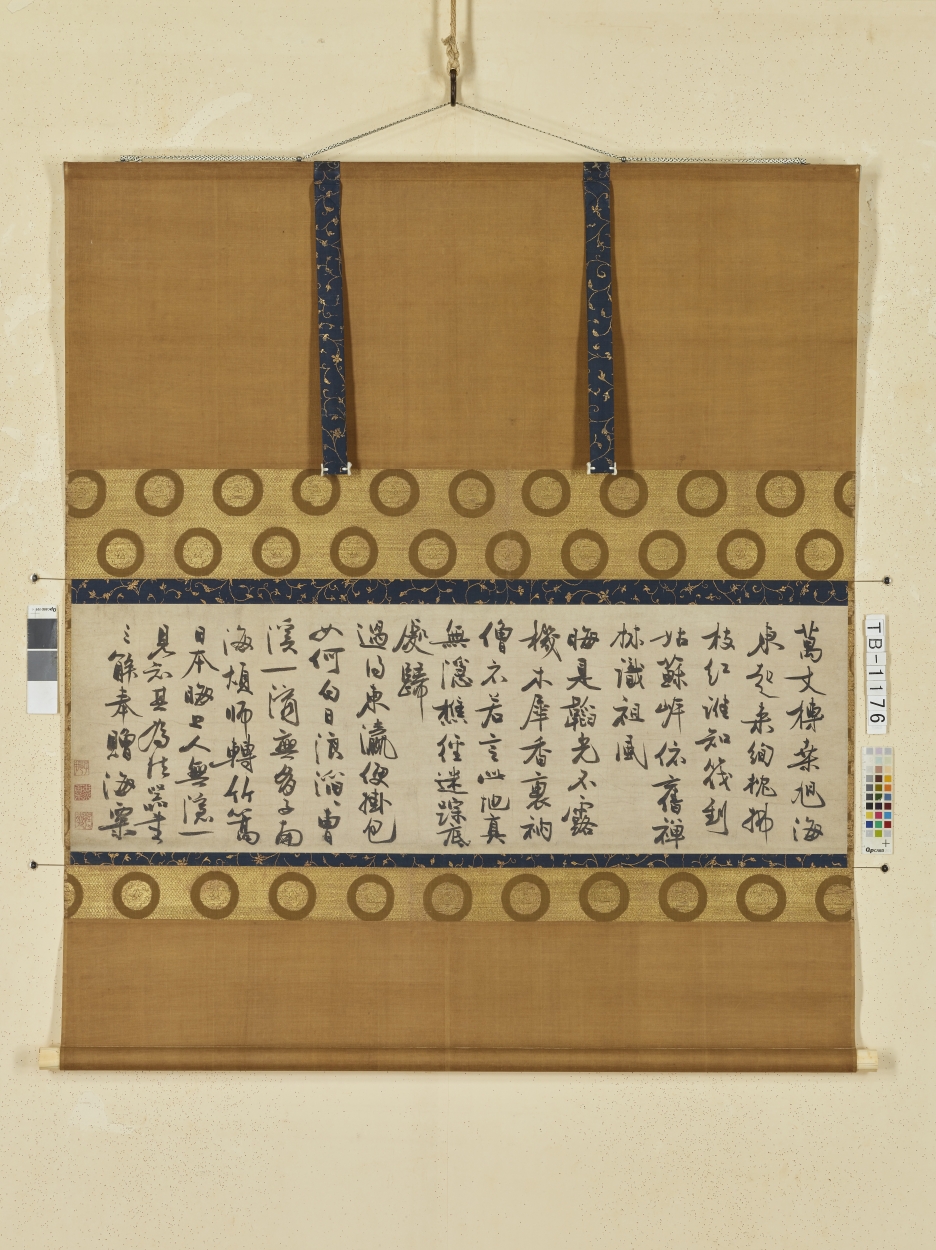 萬丈榑桑旭海
東起來絢拂
枝紅誰知筏到
姑蘇岸依舊禪
林識祖風
晦是韜光不露
機木犀香裏衲
僧衣若言此地真
無隱樵徑迷踪底
處歸
過得東瀛便掛包
如何白日浪滔〻曹
溪一滴無多子南
海煩師轉竹篙
日本晦上人無隱一
見知其為法器書
三絶奉贈海粟
TB-1176